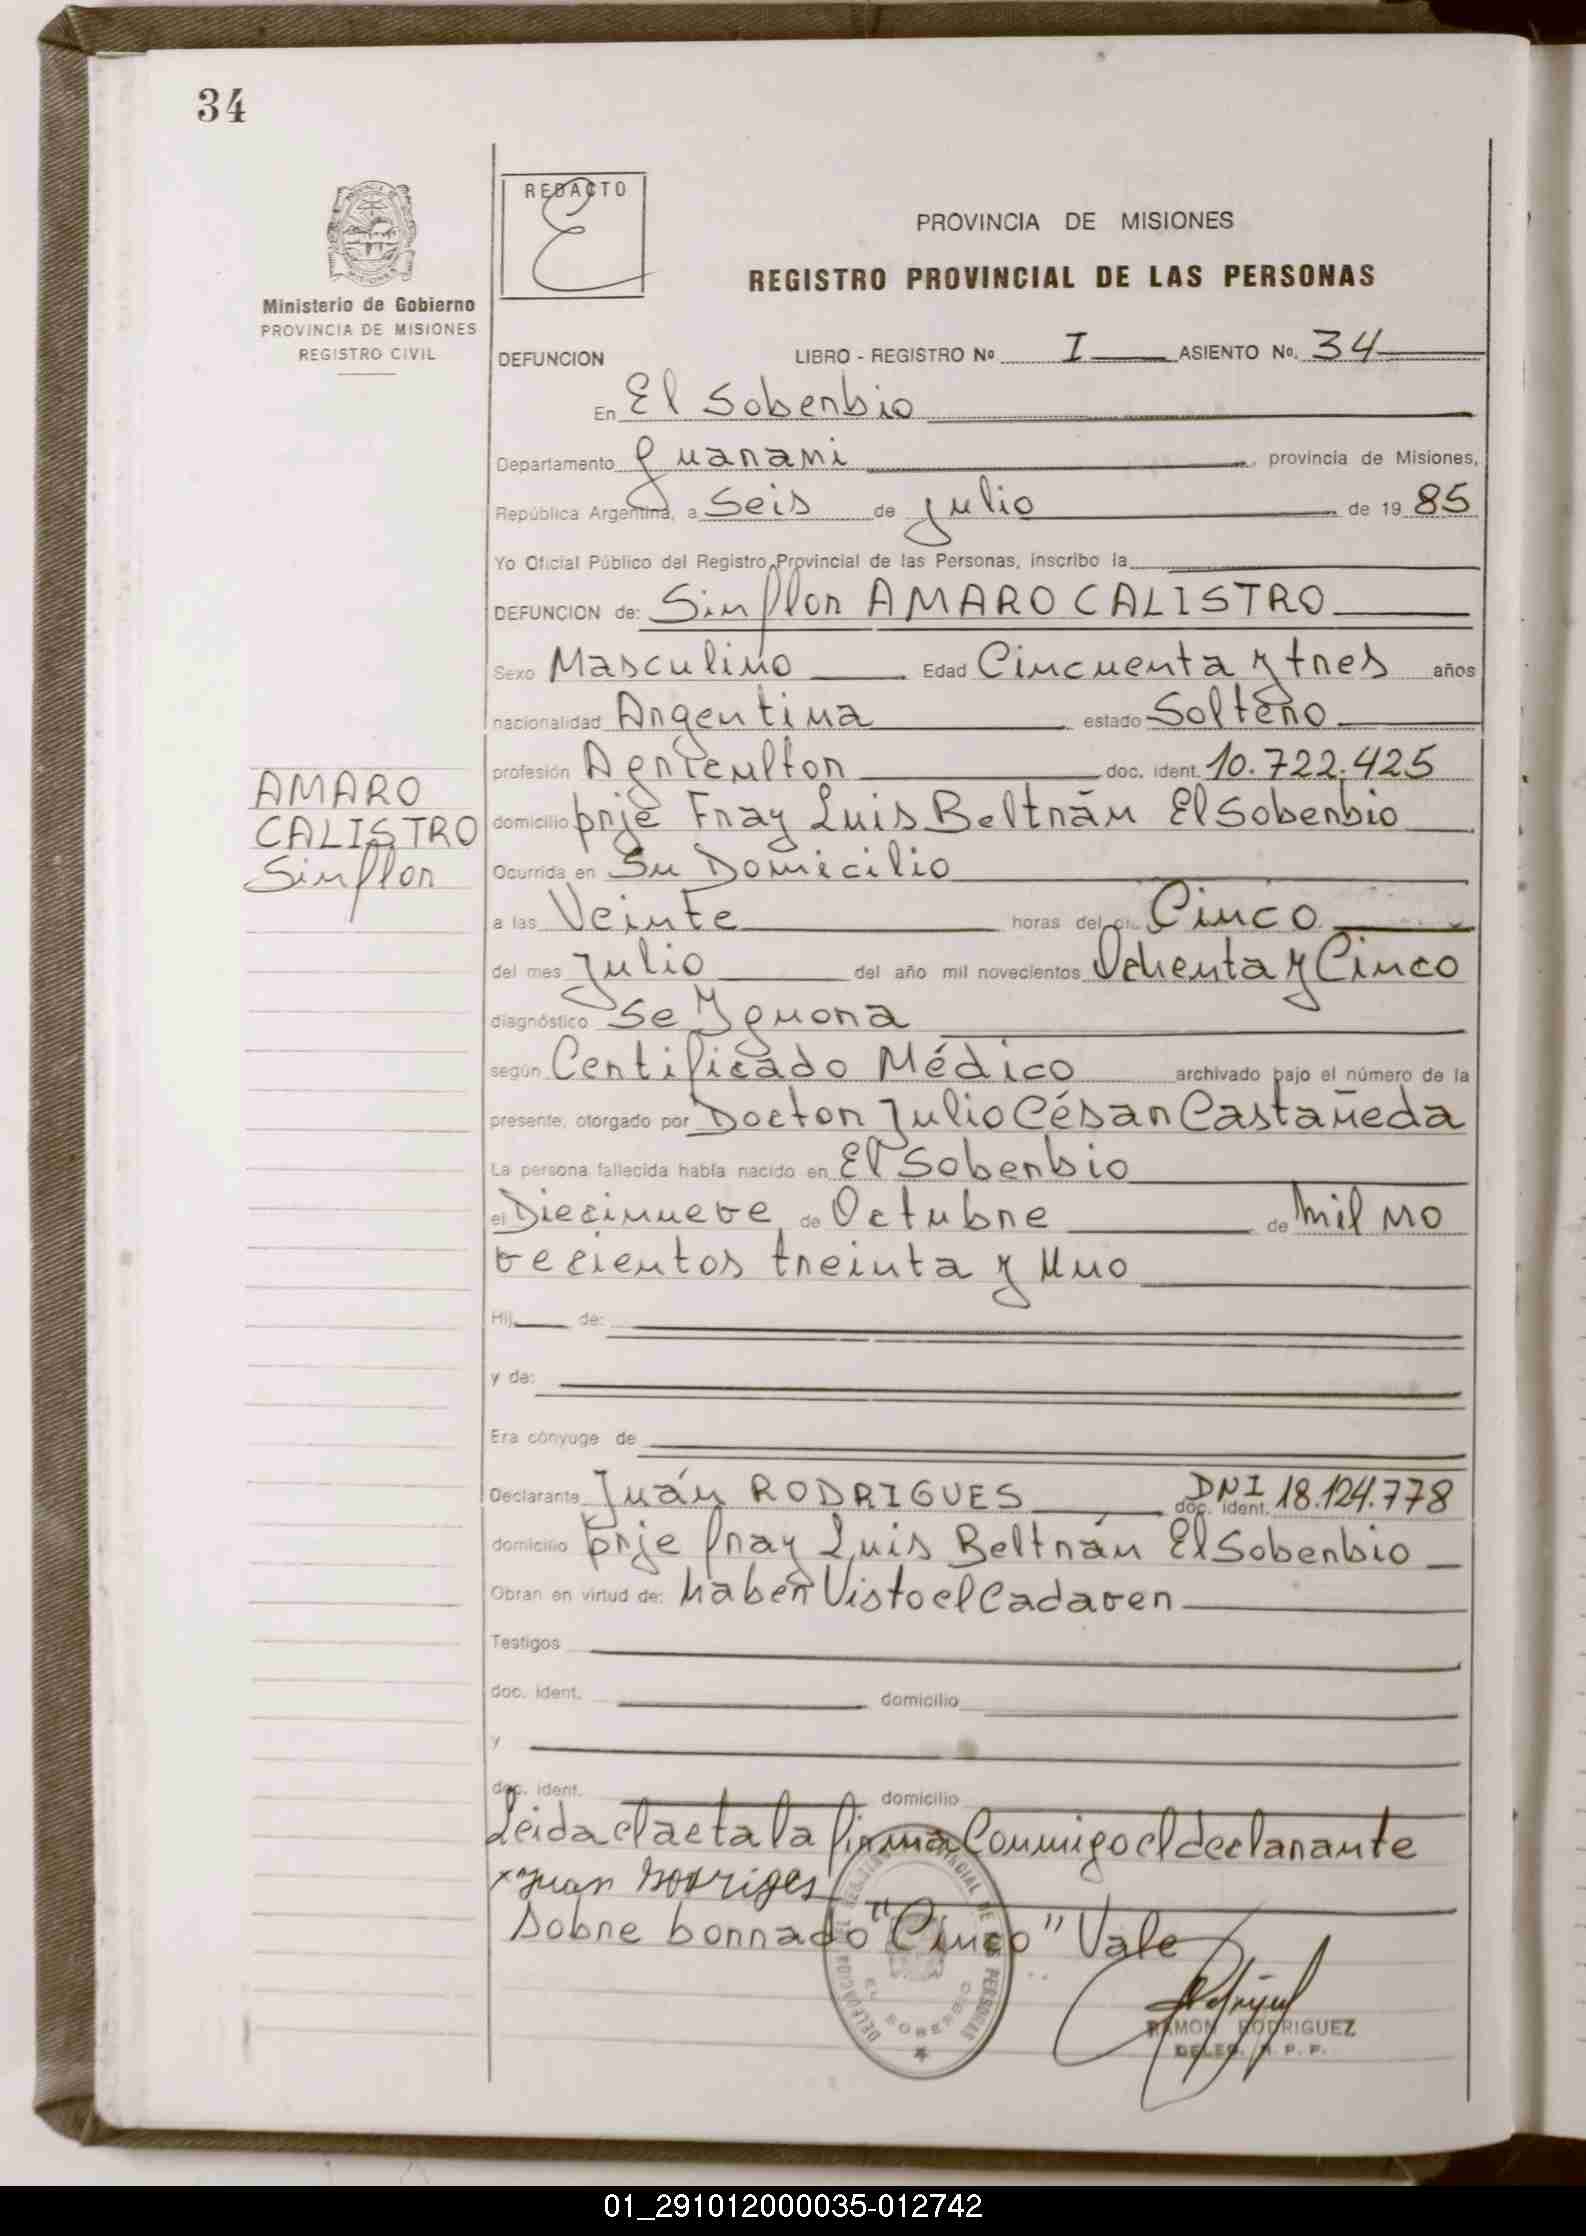 34
REDACTO
E
PROVINCIA DE MISIONES
REGISTRO PROVINCIAL DE LAS PERSONAS
Ministerio de Gobierno
PROVINCIA DE MISIONES
REGISTRO CIVIL
DEFUNCION LIBRO - REGISTRO Nº I ASIENTO Nº. 34
En El Soberbio
Departamento Guarani, provincia de Misiones,
República Argentina, a Seis de julio de 1985
Yo Oficial Público del Registro Provincial de las Personas, inscribo la
DEFUNCION de: Sinflor AMARO CALISTRO
Sexo Masculino Edad Cincuenta y tres años
nacionalidad Argentina estado Soltero
profesión Agricultor doc. ident. 10.722.425
AMARO
CALISTRO
Sinflor
domicilio prje Fray Luis Beltrán El Soberbio
Ocurrida en Su Domicilio
a las Veinte horas del Cinco
del mes Julio del año mil novecientos Ochenta y Cinco
diagnóstico Se Ygnora
según Certificado Médico archivado bajo el número de la
presente, otorgado por Doctor Julio César Castañeda
La persona fallecida había nacido en El Soberbio
el Diecinueve de Octubre de mil no
vecientos treinta y Uno
Hij de:
y de:
Era cónyuge de
Declarante Juán RODRIGUES doc. ident. DNI 18.124.778
domicilio prje fray Luis Beltrán El Soberbio
Obran en virtud de: haber Visto el Cadaver
Testigos
doc. ident. domicilio
y
doc. ident. domicilio
Leida el acta la firma Conmigo el declarante
x Juan Rodriges
Sobre borrado "Cinco" Vale
DELEGACION DEL REGISTRO PROVINCIAL DE LAS PERSONAS
EL SOBERBIO
RAMON RODRIGUEZ
DELEG. R. P. P.
01_291012000035-012742